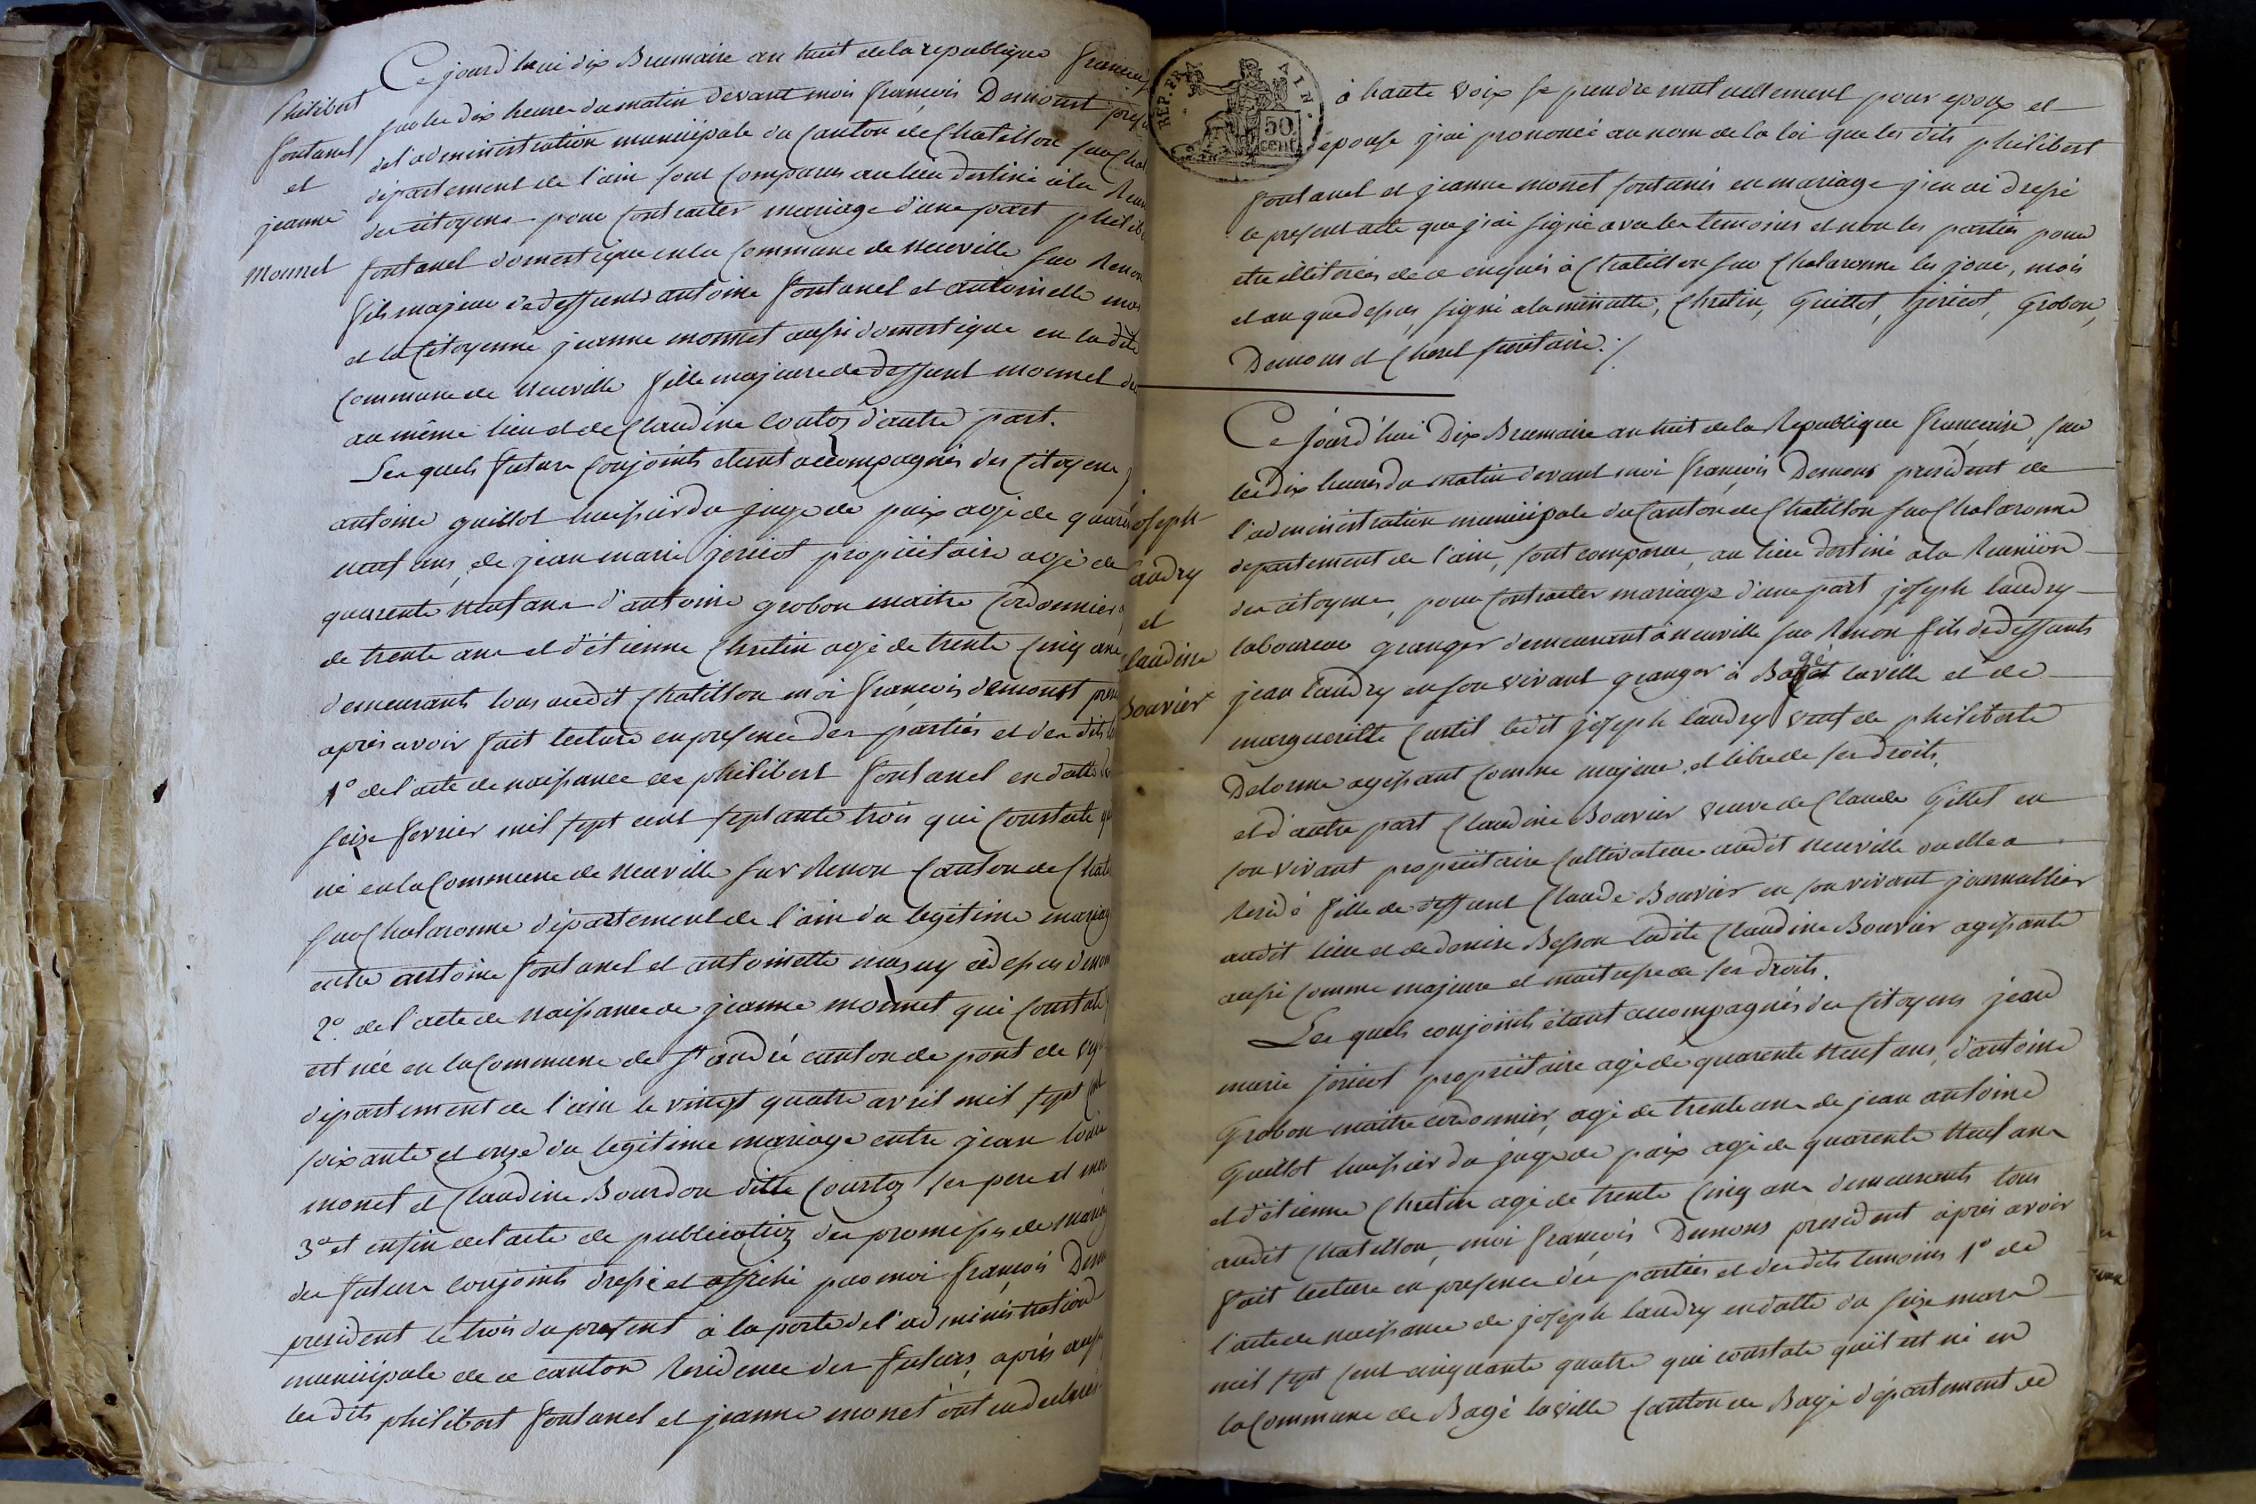 Philibert
fontanel
et
jeanne
monnet
Ce jourd'hui dix Brumaire an huit de la republique francai
sur les dix heures du matin devant moi françois Demoust presi
de l'administration municipale du Canton de Chatillon sur Chal
département de l'ain sont comparus au lieu destiné à la Reun
des citoyens pour contracter mariage d'une part philib
fontanel domestique en la commune de neuville sur Renon
fils majeur de deffunts antoine fontanel et antoinette mas
et la Citoyenne jeanne monnet aussi domestique en la dite
Commune de neuville fille majeure de deffunt monnet de
au même lieu et de Claudine Coutoz d'autre part.
Les quels futurs Conjoints étant accompagnés des Citoyens
antoine guillot huissier du juge de paix agé de quaran
neuf ans, de jean marie joricot propriétaire agé de
quarente neuf ans d'antoine grobon maitre Cordonnier
de trente ans et d'étienne Chretin agé de trente Cinq ans
demeurants tous audit Chatillon moi françois demoust presi
après avoir fait lecture en presence des parties et des dits
1° de l'acte de naissance de philibert fontanel en datte
seize fevrier mil sept cent septante trois qui Constate
né en la Commune de neuville sur Renon Canton de Chati
sur Chalaronne département de l'ain du legitime mariag
entre antoine fontanel et antoinette masuy
2° de l'acte de naissance de jeanne monnet qui Constate
est née en la Commune de St andré canton de pont de vey
département de l'ain le vingt quatre avril mil sept cent
soixante et onze du legitime mariage entre jean louis
monet et Claudine Bourdon ditte Courtoz ses pere et mere
3° et enfin de l'acte de publication des promesses de mariag
des futurs Conjoints dressé et affiché par moi françois Dem
president le trois du present à la porte de l'administration
municipale de ce canton Residence des futurs, après aussi
les dits philibert fontanel et jeanne monet ont eu declaré
à haute voix se prendre mutuellement pour epoux et
epouse j'ai prononcé au nom de la loi que les dits philibert
fontanel et jeanne monet sont unis en mariage j'en ai dressé
le present acte que j'ai signé avec les temoins et non les parties pour
etre illiterées de ce enquis à Chatillon sur Chalaronne les jour, mois
et an que dessus, signé a la minutte, Chretin, Guillot, Joricot, Grobon,
Demous et Chorel secretaire ./.
REP. FRA
AIN
50
cent
joseph
Landry
et
Claudine
Bouvier
Ce jourd'hui Dix Brumaire an huit de la Republique francaise, sur
les dix heures du matin devant moi françois Demous president de
l'administration municipale du Canton de Chatillon sur Chalaronne
département de l'ain, sont comparus, au lieu destiné à la Reunion
des citoyens, pour contracter mariage d'une part joseph landry
laboureur granger demeurant à neuville sur Renon fils de deffunts
jean Landry en son vivant granger à Bagé la ville et de
margueritte Curtil ledit joseph landry veuf de philiberte
Delorme agissant comme majeur et libre de ses droits,
et d'autre part Claudine Bouvier veuve de Claude Gillet en
son vivant propriétaire Cultivateur audit neuville ou elle a
residé fille de deffunt Claude Bouvier en son vivant journallier
audit lieu et de denise Besson ladite Claudine Bouvier agissante
aussi comme majeure et maitresse de ses droits.
Les quels conjoints étant accompagnés des Citoyens jean
marie joricot propriétaire agé de quarente neuf ans, d'antoine
Grobon maitre cordonnier, agé de trente ans de jean antoine
Guillot huissier du juge de paix agé de quarente neuf ans
et d'étienne Chretin agé de trente Cinq ans demeurants tous
audit Chatillon, moi françois Demous president après avoir
fait lecture en presence des parties et des dits temoins 1° de
l'acte de naissance de joseph landry en datte du seize mars
mil sept cent cinquante quatre qui constate qu'il est né en
la Commune de Bagé la ville Canton de Bagé département de